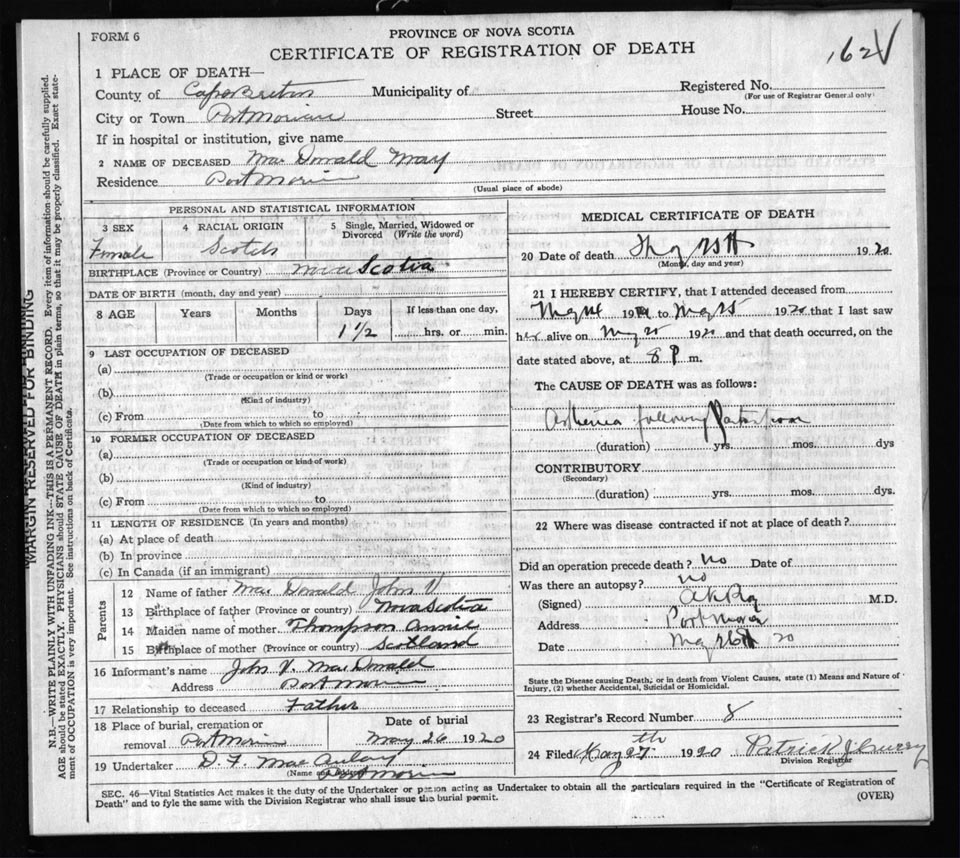 FORM 6
PROVINCE OF NOVA SCOTIA
CERTIFICATE OF REGISTRATION OF DEATH
162
1 PLACE OF DEATH—
County of Cape Breton Municipality of
Registered No.
(For use of Registrar General only)
City or Town Port Morien Street House No.
If in hospital or institution, give name
2 NAME OF DECEASED Mac Donald Mary
Residence Port Morien
(Usual place of abode)
PERSONAL AND STATISTICAL INFORMATION
3 SEX
Female
4 RACIAL ORIGIN
Scotch
5 Single, Married, Widowed or
Divorced (Write the word)
BIRTHPLACE (Province or Country) Nova Scotia
DATE OF BIRTH (month, day and year)
8 AGE Years Months Days If less than one day,
1 1/2 hrs. or min.
9 LAST OCCUPATION OF DECEASED
(a)
(Trade or occupation or kind or work)
(b)
(Kind of industry)
(c) From to
(Date from which to which so employed)
10 FORMER OCCUPATION OF DECEASED
(a)
(Trade or occupation or kind of work)
(b)
(Kind of industry)
(c) From to
(Date from which to which so employed)
11 LENGTH OF RESIDENCE (In years and months)
(a) At place of death
(b) In province
(c) In Canada (if an immigrant)
Parents
12 Name of father Mac Donald John V
13 Birthplace of father (Province or country) Nova Scotia
14 Maiden name of mother Thompson Annie
15 Birthplace of mother (Province or country) Scotland
16 Informant's name John V. MacDonald
Address Port Morien
17 Relationship to deceased Father
18 Place of burial, cremation or
removal Port Morien
Date of burial
May 26 1920
19 Undertaker D. F. Mac Aulay
(Name and Address) Port Morien
MEDICAL CERTIFICATE OF DEATH
20 Date of death May 25th 1920
(Month, day and year)
21 I HEREBY CERTIFY, that I attended deceased from
May 19 to May 25 1920 that I last saw
her alive on May 25 1920 and that death occurred, on the
date stated above, at 8 P m.
The CAUSE OF DEATH was as follows:
Asthenia following
(duration) yrs. mos. dys
CONTRIBUTORY
(Secondary)
(duration) yrs. mos. dys.
22 Where was disease contracted if not at place of death?
Did an operation precede death? no Date of
Was there an autopsy? no
(Signed) M.D.
Address Port Morien
Date May 26th 20
State the Disease causing Death, or in death from Violent Causes, state (1) Means and Nature of
Injury, (2) whether Accidental, Suicidal or Homicidal.
23 Registrar's Record Number 8
24 Filed May 27th 1920 Patrick
Division Registrar
SEC. 46—Vital Statistics Act makes it the duty of the Undertaker or person acting as Undertaker to obtain all the particulars required in the "Certificate of Registration of
Death" and to fyle the same with the Division Registrar who shall issue the burial permit.
(OVER)
MARGIN RESERVED FOR BINDING
N.B.—WRITE PLAINLY WITH UNFADING INK—THIS IS A PERMANENT RECORD. Every item of information should be carefully supplied.
AGE should be stated EXACTLY. PHYSICIANS should STATE CAUSE OF DEATH in plain terms, so that it may be properly classified. Exact state-
ment of OCCUPATION is very important. See instructions on back of Certificate.